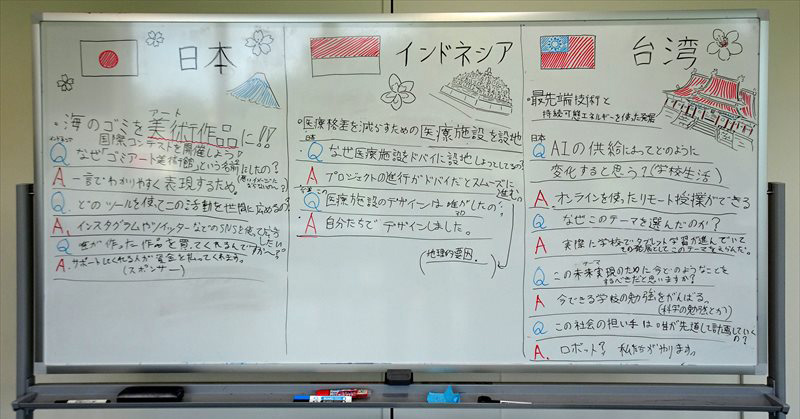 日本
・海のゴミを美術作品に!!
アート
国際コンテストを開催しよう!
インドネシア
Q なぜ「ゴミアート美術館」という名前にしたの?
A 一言でわかりやすく表現するため。
Q どのツールを使ってこの活動を世間に広めるの?
A. インスタグラムやツイッターなどのSNSを使って広めたい。
Q 誰が作った作品を買ってくれるんですか〜?
A. サポートしてくれる人が資金を払ってくれます。
(スポンサー)
インドネシア
・医療格差を減らすための医療施設を設地
日本
Q なぜ医療施設をドバイに設地しようとしてるの?
A プロジェクトの進行がドバイだとスムーズに進む。
台湾
Q 医療施設のデザインは誰がしたの?
A 自分たちでデザインしました。
(地理的要因。)
台湾
・最先端技術と
持続可能エネルギーを使った発展
日本
Q AIの供給によってどのように
変化すると思う?(学校生活)
A. オンラインを使ったリモート授業ができる
Q なぜこのテーマを選んだのか?
A. 実際に学校でタブレット学習が進んでいて
その発展としてこのテーマをえらんだ。
Q この未来実現のために今どのようなことを
テーマ
するべきだと思いますか?
A 今できる学校の勉強をがんばる。
(科学の勉強とか)
Q この社会の担い手は誰が先導して計画していくの?
A. ロボット? 私たちがやります。